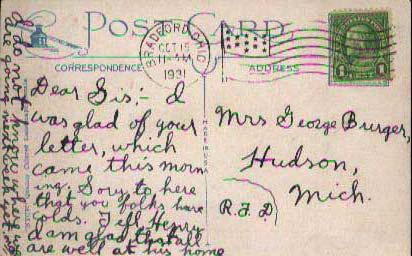 Post Card
BRADFORD, OHIO
OCT 15
11-AM
1931
CORRESPONDENCE
ADDRESS
MADE IN U.S.A.
Dear Sis:- I
was glad of your
letter, which
came this morn
ing, Sory to here
that you folks have
colds. Tell Henry
I am glad that all
are well at his home
Mrs George Burger,
Hudson,
Mich.
R.F.D
1
1
I do not
are going next